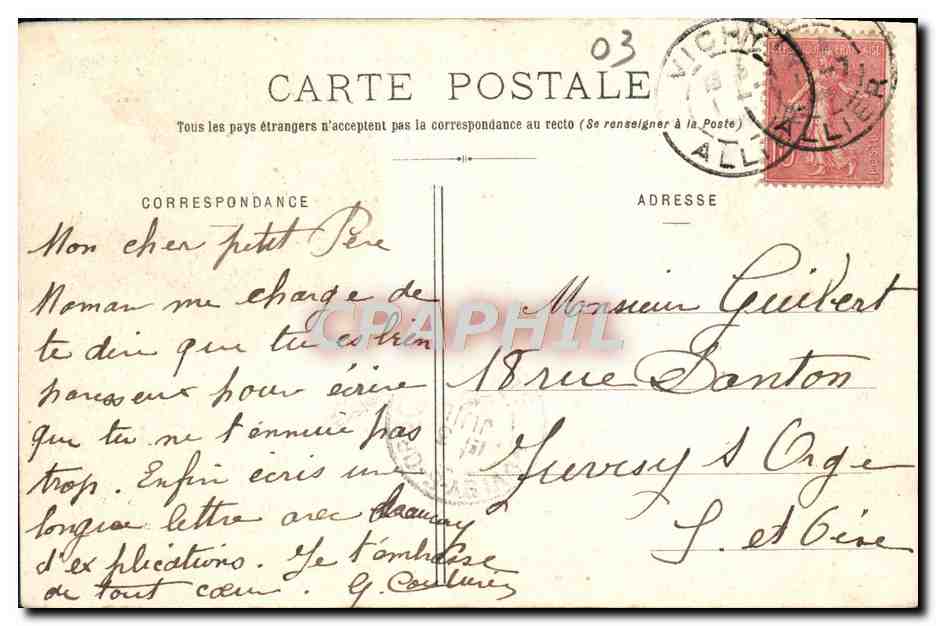 03
CARTE POSTALE
Tous les pays étrangers n'acceptent pas la correspondance au recto (Se renseigner à la Poste)
VICHY
ALLIER
RÉPUBLIQUE FRANÇAISE
CORRESPONDANCE
Mon cher petit Père
Maman me charge de
te dire que tu es bien
paresseux pour écrire
que tu ne t'ennuie pas
trop. Enfin écris une
longue lettre avec
d'explications. Je t'embrasse
de tout cœur. G.
ADRESSE
Monsieur Guibert
18 rue Danton
Juvisy s Orge
S. et Oise
CPAPHIL